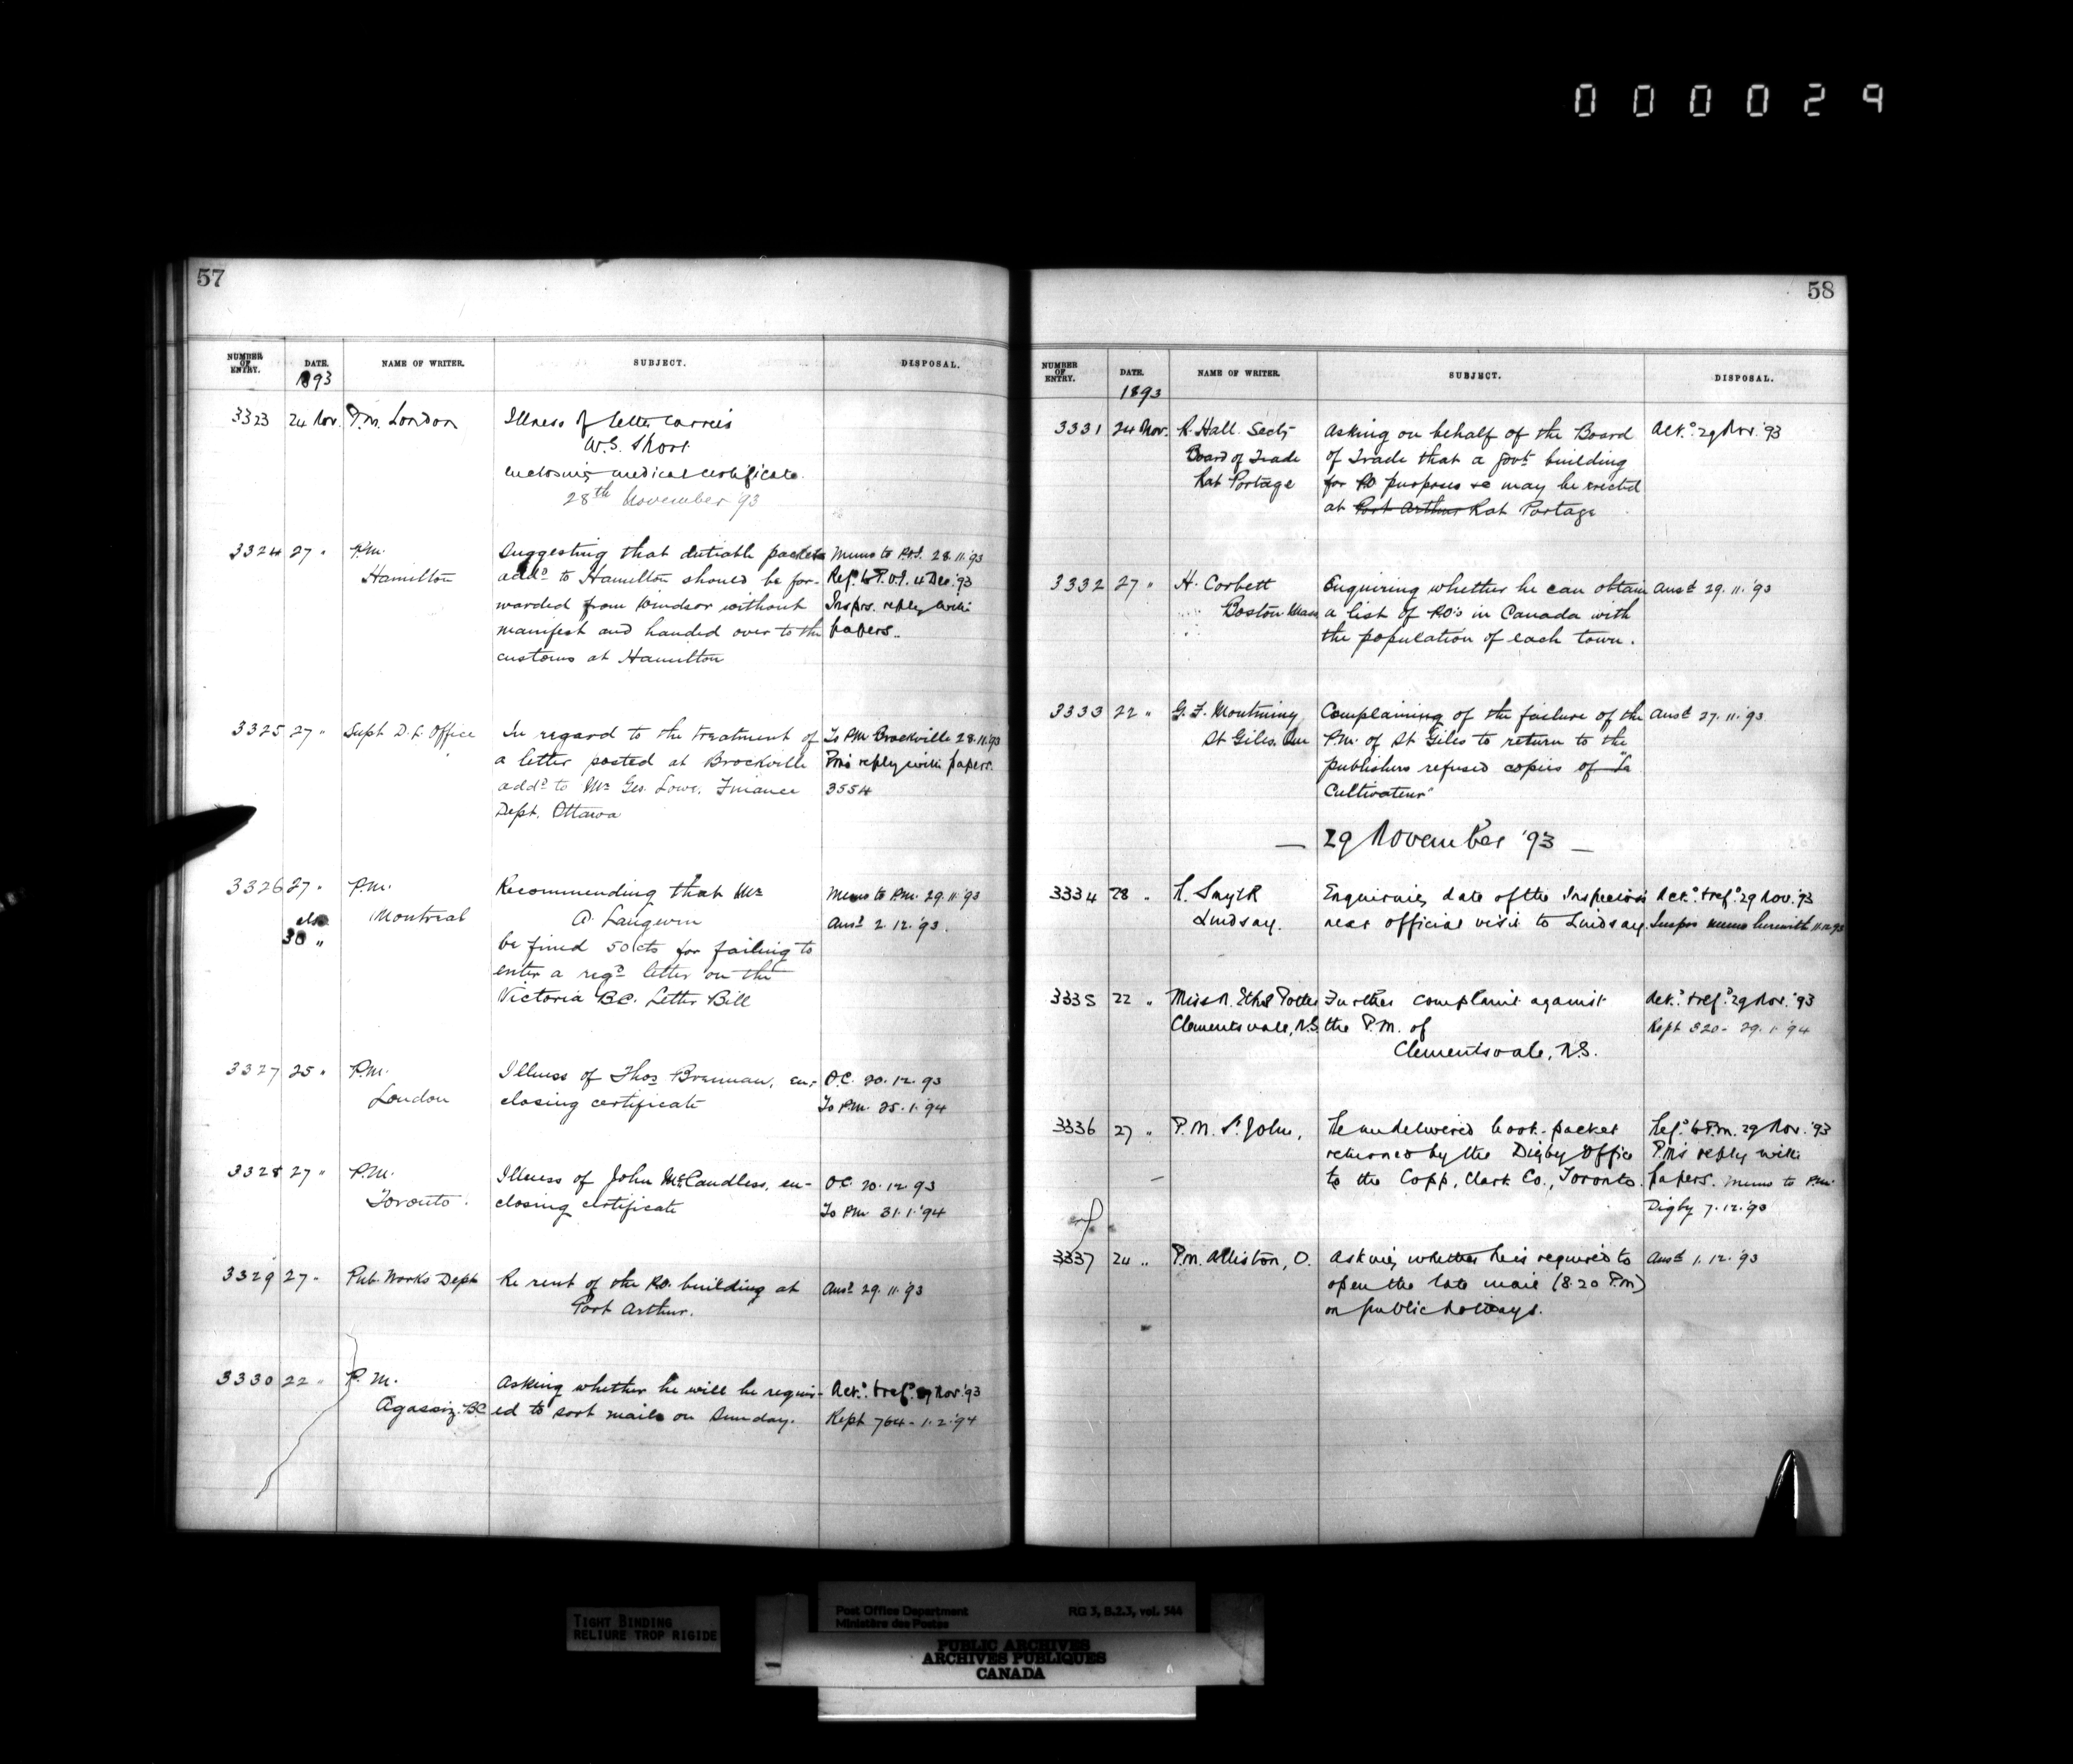 000029
57
NUMBER OF ENTRY. DATE. NAME OF WRITER. SUBJECT. DISPOSAL.
1893
3323 24 Nov. P.M. London Illness of letter carrier
W.S. Short
enclosing medical certificate
28th November 93
3324 27 " P.M. Suggesting that dutiable packets Memo to P.O.I. 28.11.93
Hamilton add^d to Hamilton should be for- Ref^d to P.O.I. 4 Dec. '93
warded from Windsor without Insprs. reply with
manifest and handed over to the papers.
customs at Hamilton
3325 27 " Supt D.L. Office In regard to the treatment of To P.M. Brockville 28.11.93
a letter posted at Brockville P.M's reply with papers.
add^d to Mr Geo. Lowe, Finance 3554
Dept. Ottawa
3326 27 " P.M. Recommending that Mr Memo to P.M. 29.11.93
also Montreal A. Langevin Ans^d 2.12.'93.
30 " be fined 50 cts for failing to
enter a reg^d letter on the
Victoria B.C. Letter Bill
3327 25 " P.M. Illness of Thos Brennan, en- O.C. 20.12.93
London closing certificate To P.M. 25.1.'94
3328 27 " P.M. Illness of John McCandless, en- O.C. 20.12.93
Toronto. closing certificate To P.M. 31.1.'94
3329 27 " Pub. Works Dept Re rent of the P.O. building at Ans^d 29.11.'93
Port Arthur.
3330 22 " P.M. Asking whether he will be requir- Ack^d. & ref^d. 29 Nov. '93
Agassiz. B.C. ed to sort mails on Sunday. Rept 764 - 1.2.'94
58
NUMBER OF ENTRY. DATE. NAME OF WRITER. SUBJECT. DISPOSAL.
1893
3331 24 Nov. R. Hall. Secty Asking on behalf of the Board Ack.^d 29 Nov. '93
Board of Trade of Trade that a Govt building
Rat Portage for P.O. purposes may be erected
at Port Arthur Rat Portage
3332 27 " H. Corbett Enquiring whether he can obtain Ans^d 29.11.'93
Boston Mass a list of P.O's in Canada with
the population of each town.
3333 22 " G.F. Montminy, Complaining of the failure of the Ans^d 27.11.'93
St Giles. Que P.M. of St Giles to return to the
publishers refused copies of "Le
Cultivateur"
— 29 November '93 —
3334 28 " Smyth Enquiries date of the Inspector's Ack.^d & ref.^d 29 Nov. '93
Lindsay. next official visit to Lindsay. Insprs memo herewith 11.12.93
3335 22 " Miss N. Ethel Potter Further complaint against Ack.^d & ref.^d 29 Nov. '93
Clementsvale, N.S. the P.M. of Rept 320 - 29.1.'94
Clementsvale, N.S.
3336 27 " P.M. St. John, Re undelivered book-packet Ref.^d to P.M. 29 Nov. '93
returned by the Digby Office P.M's reply with
to the Copp, Clark Co., Toronto. papers. Memo to P.M.
Digby 7.12.'93
3337 24 " P.M. Alliston, O. Asking whether he is required to Ans^d 1.12.'93
open the late mail (8.20 P.M)
on public holidays.
TIGHT BINDING
RELIURE TROP RIGIDE
Post Office Department RG 3, B.2.3, vol. 544
Ministère des Postes
PUBLIC ARCHIVES
ARCHIVES PUBLIQUES
CANADA